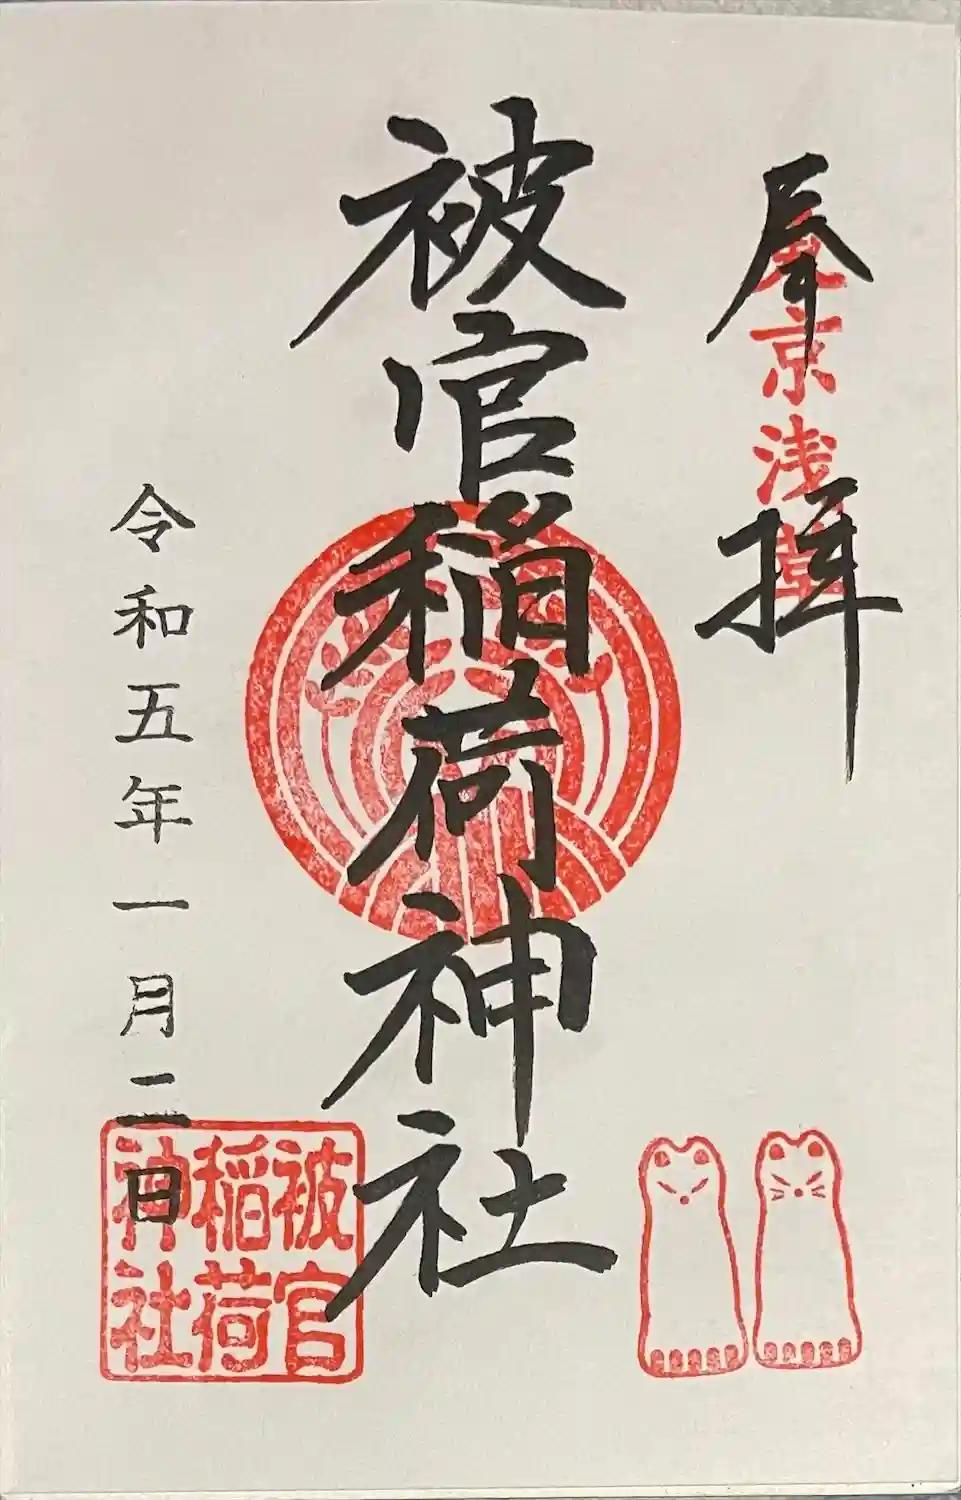 奉拝
東京浅草
被官稲荷神社
令和五年一月二日
被官
稲荷
神社